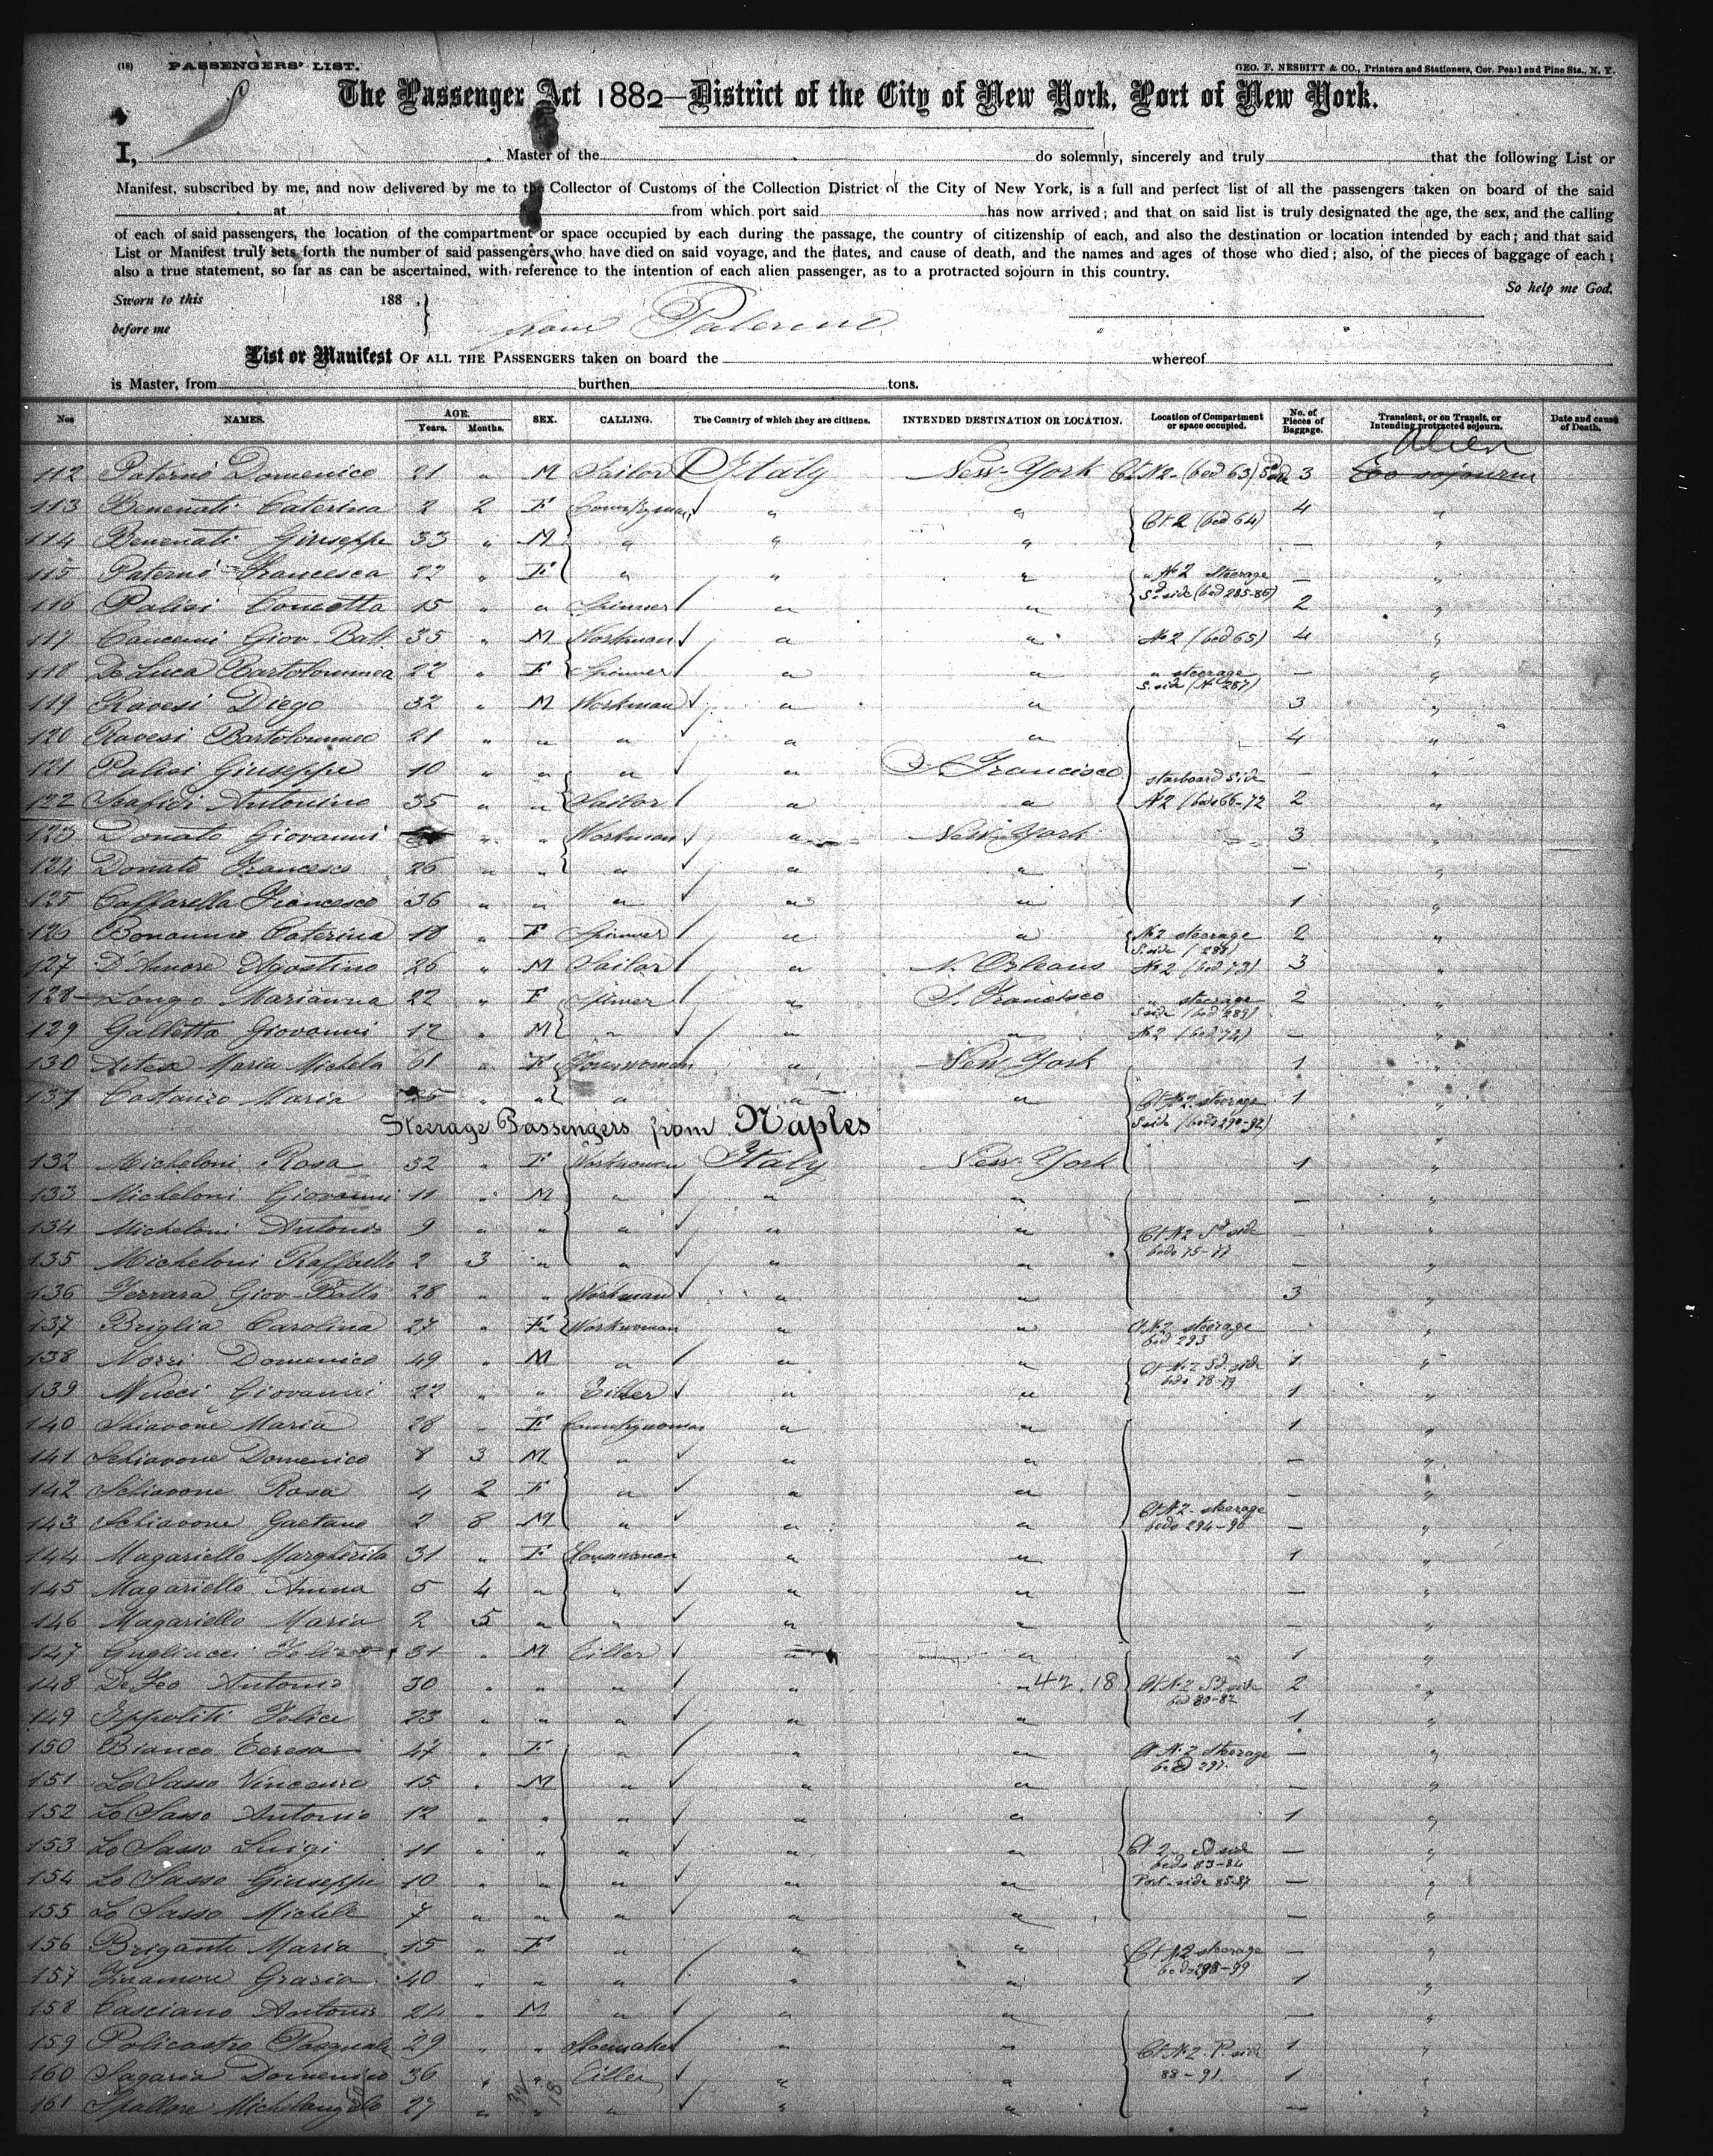 (18) PASSENGERS' LIST. GEO. F. NESBITT & CO., Printers and Stationers, Cor. Pearl and Pine Sts., N. Y.
The Passenger Act 1882—District of the City of New York, Port of New York.
I, Master of the do solemnly, sincerely and truly that the following List or
Manifest, subscribed by me, and now delivered by me to the Collector of Customs of the Collection District of the City of New York, is a full and perfect list of all the passengers taken on board of the said
at from which port said has now arrived; and that on said list is truly designated the age, the sex, and the calling
of each of said passengers, the location of the compartment or space occupied by each during the passage, the country of citizenship of each, and also the destination or location intended by each; and that said
List or Manifest truly sets forth the number of said passengers who have died on said voyage, and the dates, and cause of death, and the names and ages of those who died; also, of the pieces of baggage of each;
also a true statement, so far as can be ascertained, with reference to the intention of each alien passenger, as to a protracted sojourn in this country.
So help me God.
Sworn to this 188 .
before me
from Palermo
List or Manifest OF ALL THE PASSENGERS taken on board the whereof
is Master, from burthen tons.
Nos NAMES. AGE. Years. Months. SEX. CALLING. The Country of which they are citizens. INTENDED DESTINATION OR LOCATION. Location of Compartment or space occupied. No. of Pieces of Baggage. Transient, or on Transit, or Intending protracted sojourn. Date and cause of Death.
Alien
112 Paternò Domenico 21 " M Sailor Italy New-York Ct N2- (bed 63) 3 to sojourn
113 Benenati Caterina 2 2 F " " Ct 2 (bed 64) 4 "
114 Benenati Giuseppe 33 " M " " " — "
115 Paternò Francesca 22 " F " " " " No 2 Steerage — "
116 Palisi Concetta 15 " " Spinner " " Sd side (bed 285-86) 2 "
117 Cancemi Giov. Batt. 35 " M Workman " " No 2 (bed 65) 4 "
118 De Luca Bartolommea 22 " F Spinner " " " steerage S. side (N 287) — "
119 Ravesi Diego 32 " M Workman " " 3 "
120 Ravesi Bartolommeo 21 " " " " " 4 "
121 Palisi Giuseppe 10 " " " " S. Francisco starboard side — "
122 Scafidi Antonino 35 " " Sailor " " N2 (beds 66-72 2 "
123 Donato Giovanni " " Workman " New-York 3 "
124 Donato Francesco 26 " " " " " — "
125 Caffarella Francesco 36 " " " " " 1 "
126 Bonanno Caterina 18 " F Spinner " " No 2 steerage S. side ( 288) 2 "
127 D'Amore Agostino 26 " M Sailor " N. Orleans No 2 (bed 73) 3 "
128 Longo Marianna 22 " F Spinner " S. Francisco " steerage S side (bed 289) 2 "
129 Galletta Giovanni 12 " M " " " No 2 (bed 74) — "
130 Maria Michela 61 " F " New York 1 "
131 Costanzo Maria " " " " " Ct N2 steerage S side (beds 290-92) 1 "
Steerage Passengers from Naples
132 Micheloni Rosa 32 " F Workwoman Italy New-York 1 "
133 Micheloni Giovanni 11 " M " " " — "
134 Micheloni Antonio 9 " " " " " Ct N2 Sd side — "
135 Micheloni Raffaello 2 3 " " " " beds 75-77 — "
136 Ferrara Giov-Batta 28 " " Workman " " 3 "
137 Briglia Carolina 27 " F Workwoman " " Ct N2 steerage bed 293 — "
138 Domenico 49 " M " " " Ct N2 Sd. side 1 "
139 Nucci Giovanni 22 " " Tiller " " beds 78-79 1 "
140 Schiavone Maria 28 " F Countrywoman " " 1 "
141 Schiavone Domenico 8 3 M " " " — "
142 Schiavone Rosa 4 2 F " " " — "
143 Schiavone Gaetano 2 8 M " " " Ct N2- steerage beds 294-96 — "
144 Magariello Margherita 31 " F " " 1 "
145 Magariello Anna 5 4 " " " " — "
146 Magariello Maria 2 5 " " " " — "
147 Gugliucci 31 " M Tiller " " 1 "
148 De Feo Antonio 30 " " " " " 42.18 Ct N2 Sd side bed 80-82 2 "
149 Ippoliti Felice 23 " " " " " 1 "
150 Bianco Teresa 47 " F " " " Ct N-2 steerage bed 297. — "
151 Lo Sasso Vincenzo 15 " M " " " — "
152 Lo Sasso Antonio 12 " " " " " 1 "
153 Lo Sasso Luigi 11 " " " " " Ct 2 Sd side beds 83-84 — "
154 Lo Sasso Giuseppe 10 " " " " " Port-side 85-87 — "
155 Lo Sasso Michele 7 " " " " " — "
156 Brigante Maria 15 " F " " " Ct N2 steerage — "
157 Finamore Grazia 40 " " " " " beds 298-99 1 "
158 Casciano Antonio 24 " M " " " — "
159 Policastro Pasquale 29 " " Shoemaker " " Ct N-2- P. side 1 "
160 Sagaria Domenico 36 " " Tiller " " 88-91 1 "
161 Spallone Michelangelo 27 " " " " " — "